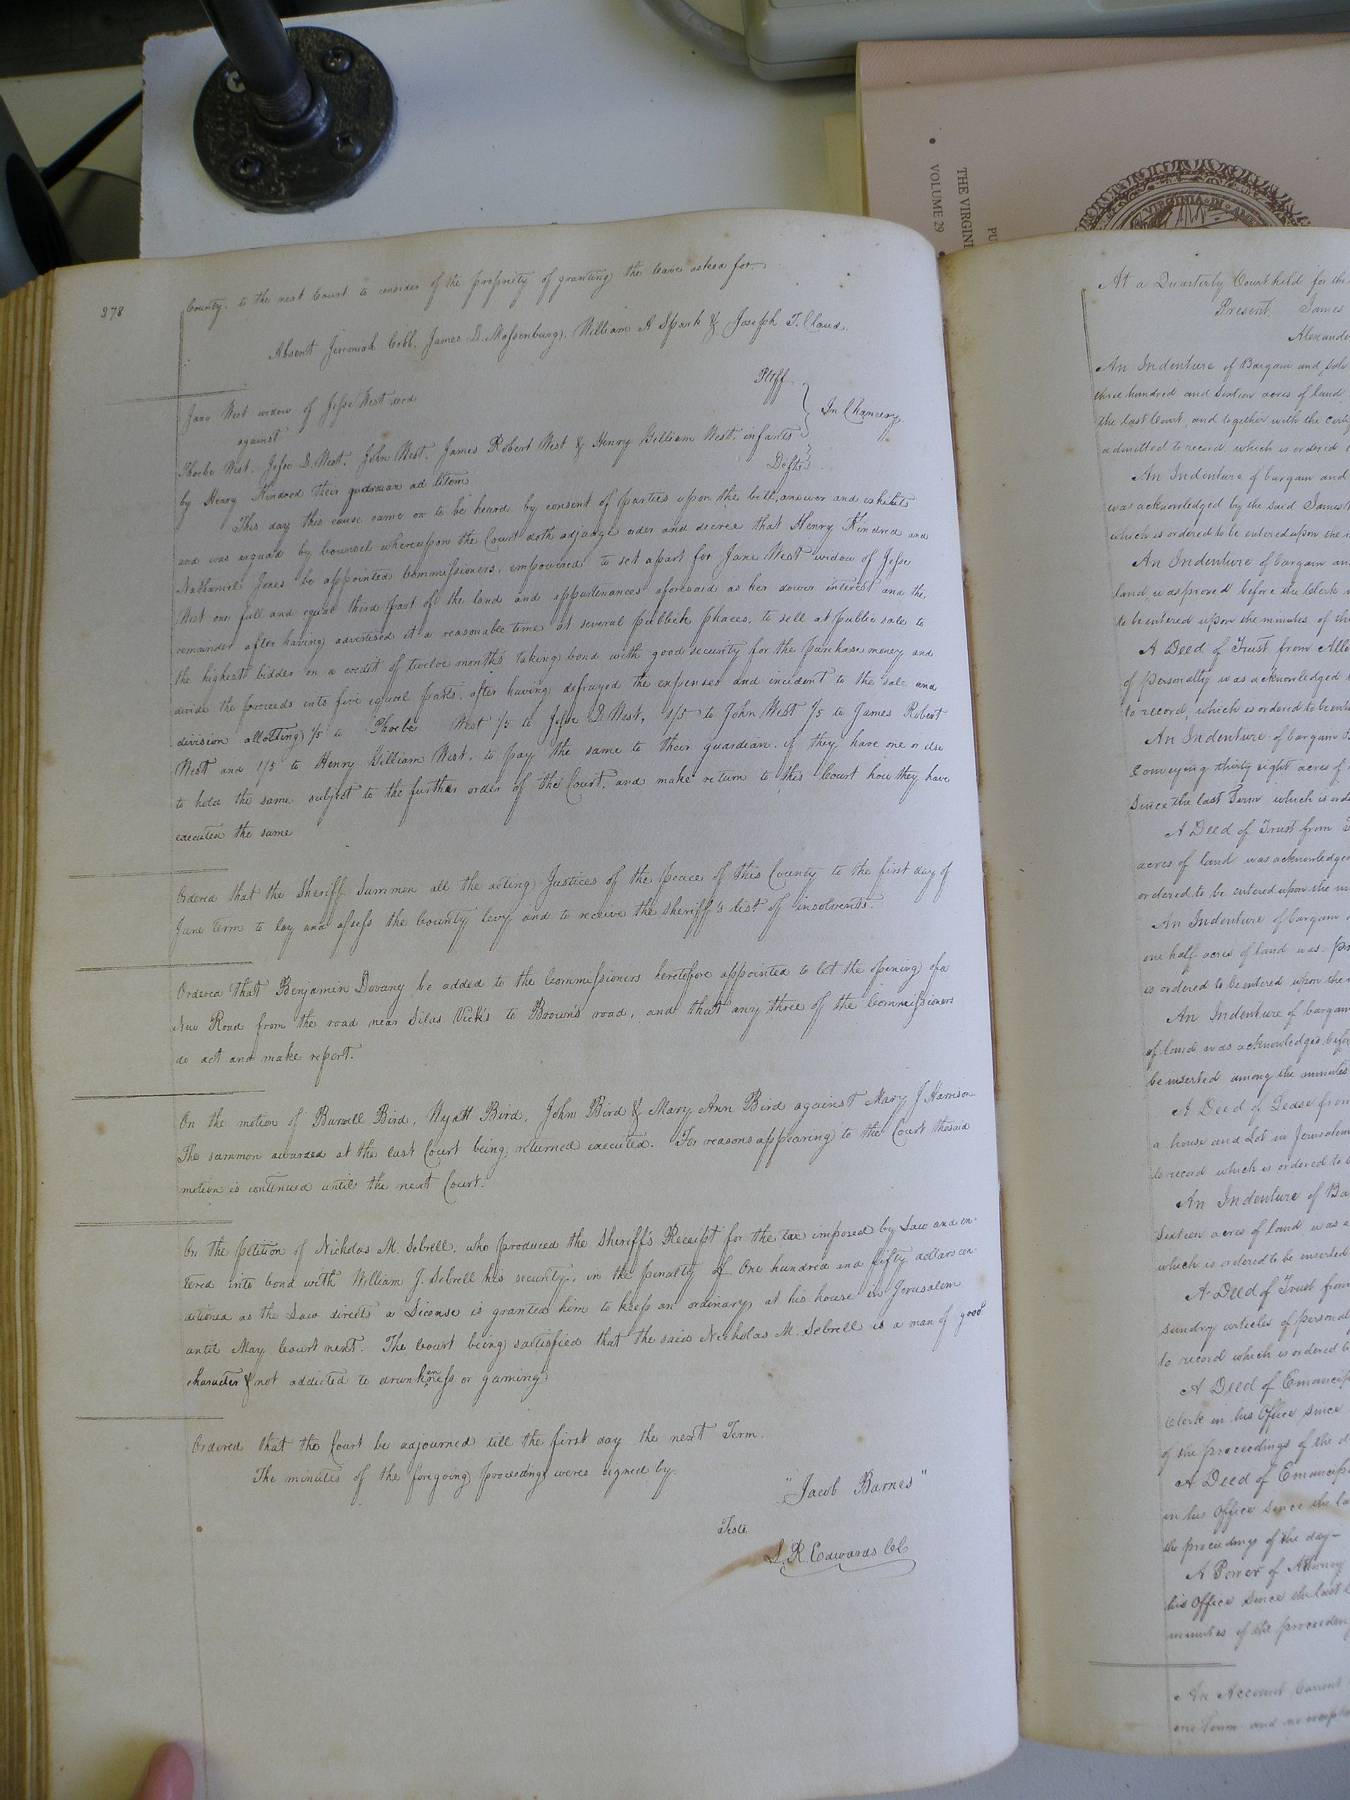 278
County, to the next Court to consider of the propriety of granting the leave asked for.
Absent Jeremiah Cobb, James D. Massenburg, William A Spark & Joseph T. Claud.
Jane West widow of Jesse West decd Pltff
against In Chancery
Phoebe West, Jesse D. West, John West, James Robert West & Henry Gilliam West, infants
by Henry Kindred their guardian ad litem Defts
This day this cause came on to be heard by consent of parties upon the bill, answer and exhibits
and was argued by Counsel whereupon the Court doth adjudge order and decree that Henry Kindred and
Nathaniel Jones be appointed Commissioners, empowered to set apart for Jane West widow of Jesse
West one full and equal third part of the land and appurtenances aforesaid as her dower interest and the
remainder after having advertised it a reasonable time at several publick places, to sell at public sale to
the highest bidder on a credit of twelve months taking bond with good security for the purchase money and
devide the proceeds into five equal parts, after having defrayed the expenses and incident to the sale and
division allotting 1/5 to Phoebe West 1/5 to Jesse D. West, 1/5 to John West 1/5 to James Robert
West and 1/5 to Henry Gilliam West, to pay the same to their guardian, if they have one or else
to hold the same subject to the further order of the Court, and make return to this Court how they have
executed the same
Ordered that the Sheriff Summon all the acting Justices of the peace of this County to the first day of
June term to lay and assess the County levy and to receive the sheriff's list of insolvents.
Ordered that Benjamin Dovany be added to the Commissioners heretofore appointed to let the opening of a
New Road from the road near Silas Vick's to Browns road, and that any three of the Commissioners
do act and make report.
On the motion of Burwell Bird, Wyatt Bird, John Bird & Mary Ann Bird against Mary J Harrison
The summon awarded at the last Court being returned executed. For reasons appearing to the Court the said
motion is continued until the next Court.
On the petition of Nicholas M. Sebrell, who produced the Sheriff's Receipt for the tax imposed by Law and en-
tered into bond with William J. Sebrell his security, in the penalty of One hundred and fifty dollars con-
ditioned as the Law directs a License is granted him to keep an ordinary at his house in Jerusalem
until May Court next. The Court being satisfied that the said Nicholas M. Sebrell is a man of good
character & not addicted to drunkenness or gaming
Ordered that the Court be adjourned till the first day the next Term.
The minutes of the foregoing proceedings were signed by.
"Jacob Barnes"
Teste
L. R. Edwards CC
THE VIRGINI
VOLUME 29
PU
VIRGINIA
At a Quarterly Court held for the
Present, James
Alexande
An Indenture of Bargain and sale
three hundred and sixteen acres of land
the last Court, and together with the certi
admitted to record, which is ordered
An Indenture of bargain and
was acknowledged by the said James
which is ordered to be entered upon the
An Indenture of bargain an
land, was proved before the Clerk
to be entered upon the minutes of the
A Deed of Trust from Alle
of personalty was acknowledged
to record, which is ordered to be ente
An Indenture of bargain
Conveying thirty eight acres of
Since the last Term which is orde
A Deed of Trust from
acres of land was acknowledged
ordered to be entered upon the mi
An Indenture of bargain
one half acres of land was pr
is ordered to be entered upon the
An Indenture of bargain
of land was acknowledged before
be inserted among the minutes
A Deed of Lease from
a house and Lot in Jerusalem
to record which is ordered to b
An Indenture of Ba
Sixteen acres of land was a
which is ordered to be inserted
A Deed of Trust from
sundry articles of personal
to record which is ordered to
A Deed of Emancip
Clerk in his Office since
of the proceedings of the d
A Deed of Emancip
in his Office since the la
the proceedings of the day
A Power of Attorney
his Office since the last
minutes of the proceeding
An Account Current
one Term and no excep